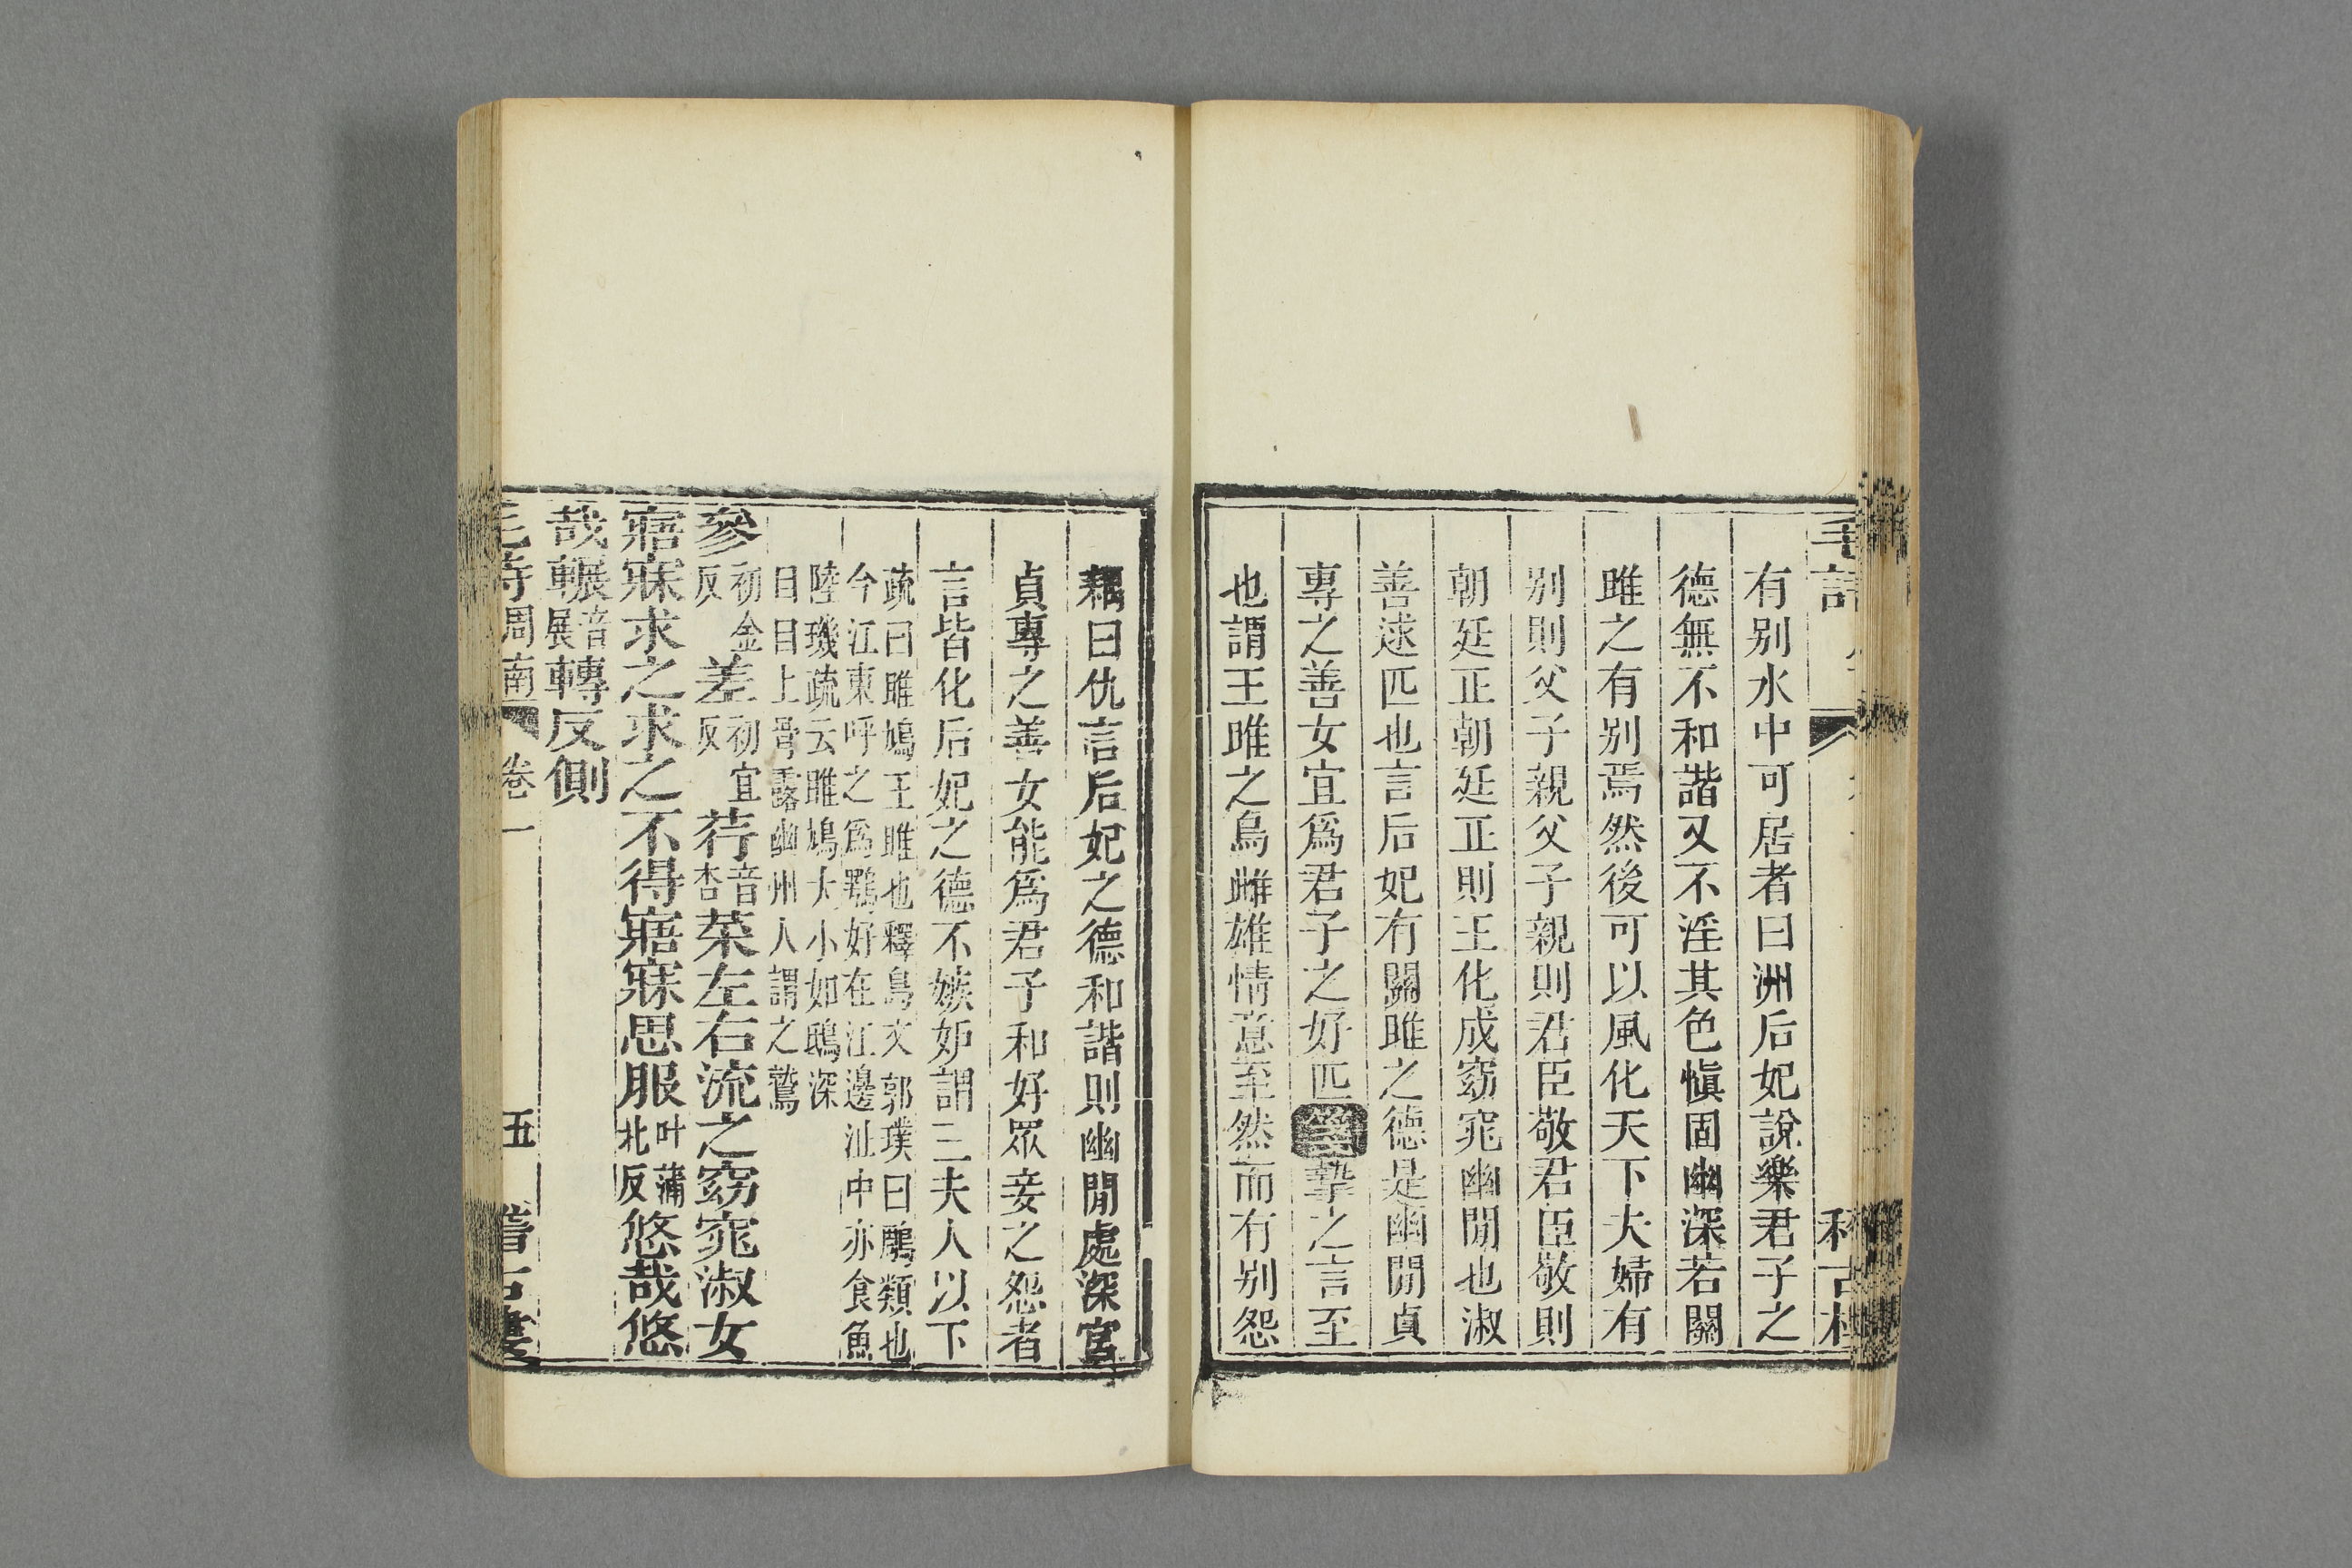 有别水中可居者曰洲后妃說樂君子之
德無不和諧又不淫其色愼固幽深若關
雎之有别焉然後可以風化天下夫婦有
别則父子親父子親則君臣敬君臣敬則
朝廷正朝廷正則王化成窈窕幽閒也淑
善逑匹也言后妃有關雎之德是幽閒貞
專之善女宜爲君子之好匹箋摯之言至
也謂王雎之鳥雌雄情意至然而有别怨
耦曰仇言后妃之德和諧則幽閒處深宮
貞專之善女能爲君子和好眾妾之怨者
言皆化后妃之德不嫉妒謂三夫人以下
疏曰雎鳩王雎也釋鳥文郭璞曰鵰類也
今江東呼之爲鶚好在江邊沚中亦食魚
陸璣疏云雎鳩大小如鴟深
目目上骨露幽州人謂之鷲
參初金反差初宜反荇音杏菜左右流之窈窕淑女
寤寐求之求之不得寤寐思服叶蒲北反悠哉悠
哉輾音展轉反側
毛詩周南 卷一 五 稽古樓